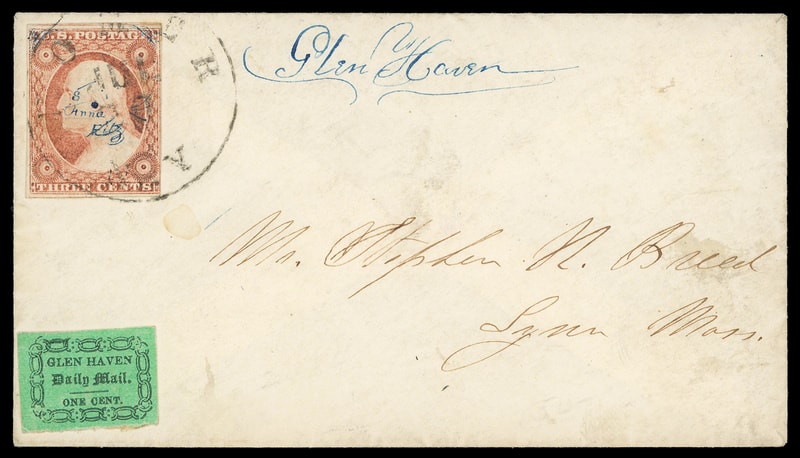 U.S. POSTAG
THREE CENTS
8
Anna
Glen Haven
Mr. Stephen N. Breed
Lynn Mass.
GLEN HAVEN
Daily Mail.
ONE CENT.